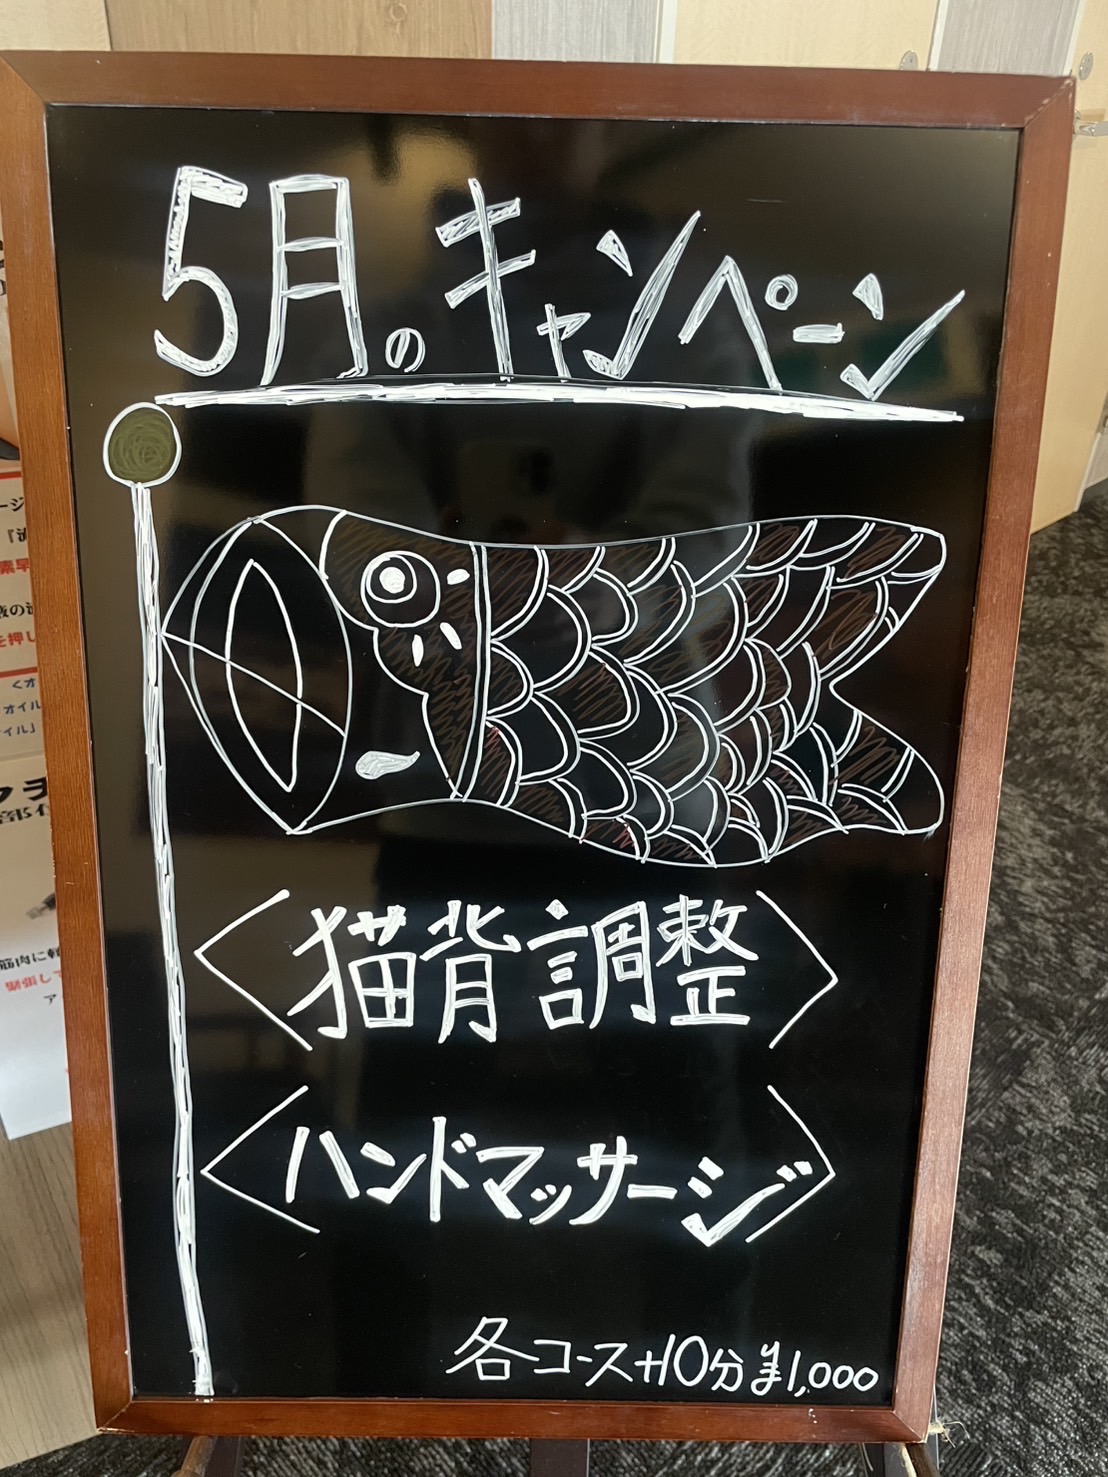 5月のキャンペーン
〈猫背調整〉
〈ハンドマッサージ〉
各コース+10分¥1,000